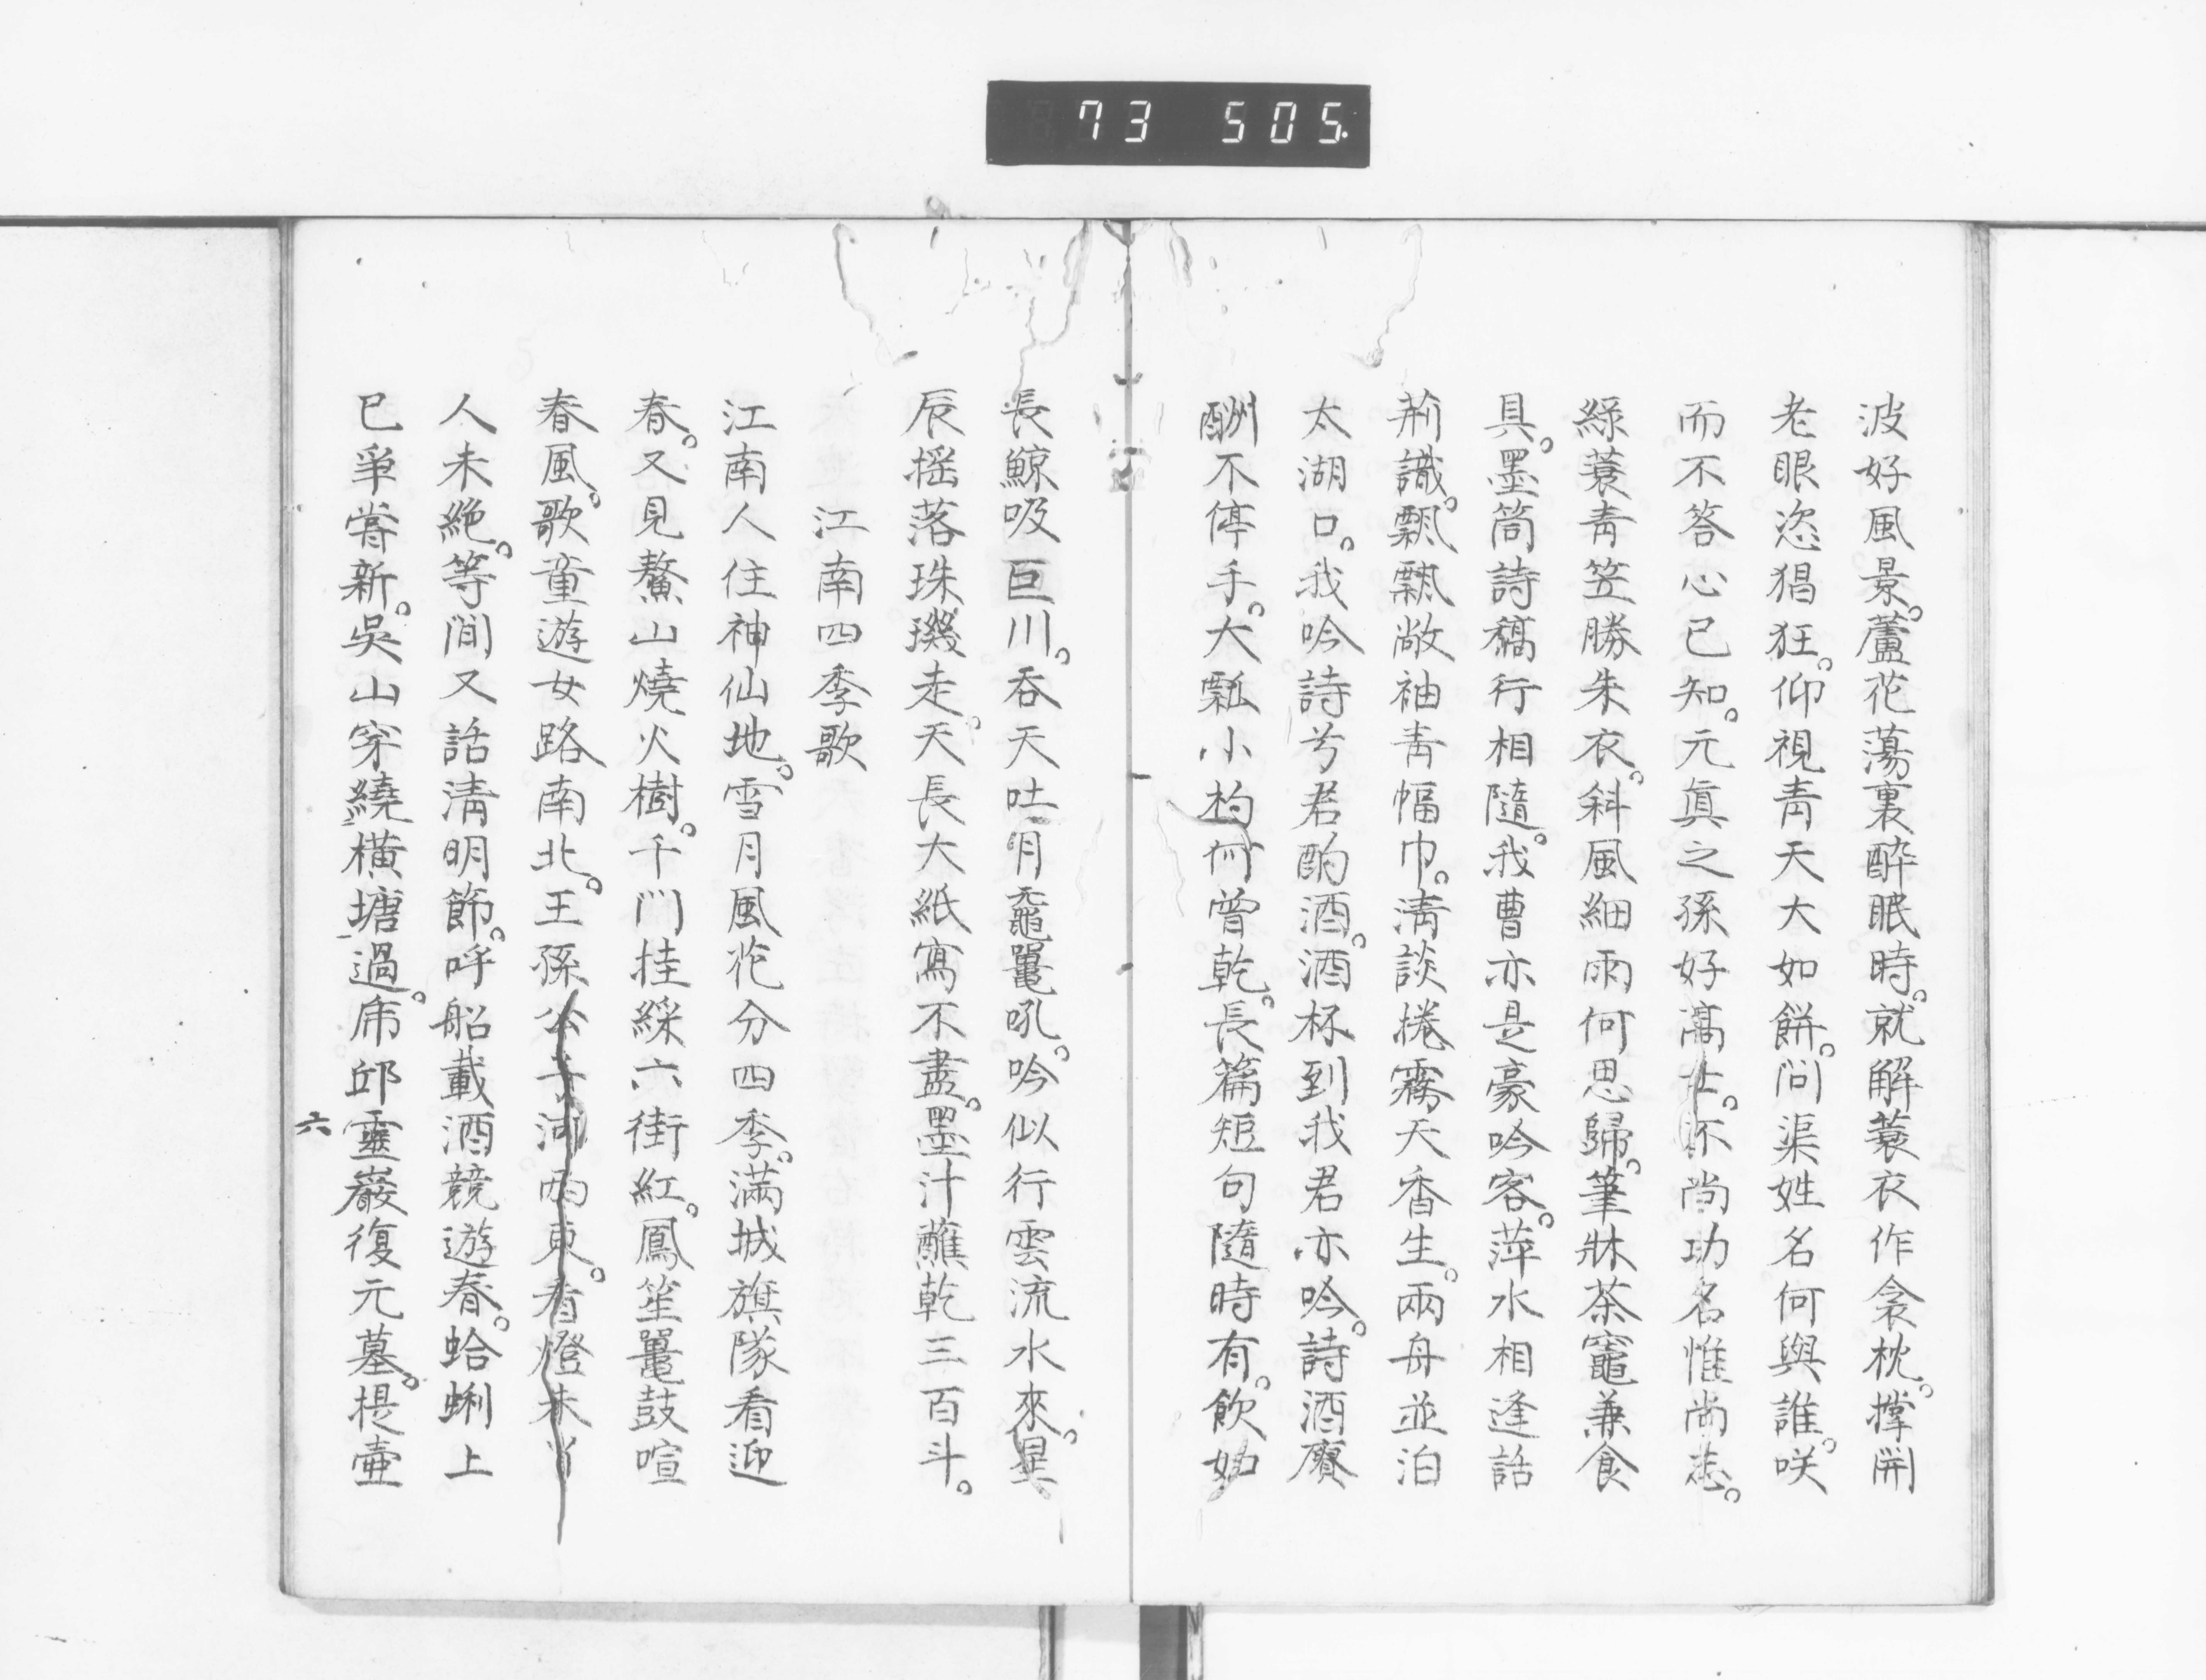 73 505.
波好風景。蘆花蕩裏醉眠時。就解蓑衣作衾枕。撑開
老眼恣猖狂。仰視青天大如餅。问渠姓名何與誰。咲
而不答心已知。元眞之孫好高士。不尚功名惟尚志。
綠蓑青笠勝朱衣。斜風細雨何思歸。筆牀茶竈兼食
具。墨筒詩稿行相隨。我曹亦是豪吟客。萍水相逢話
荊識。飄飄敞袖青幅巾。清談捲霧天香生。兩舟並泊
太湖口。我吟詩兮君酌酒。酒杯到我君亦吟。詩酒賡
酬不停手。大瓢小杓何曾乾。長篇短句隨時有。飲如
長鯨吸巨川。吞天吐月黿鼉吼。吟似行雲流水來。星
辰摇落珠璣走。天長大紙寫不盡。墨汁蘸乾三百斗。
江南四季歌
江南人住神仙地。雪月風花分四季。滿城旗隊看迎
春。又見鰲山燒火樹。千門挂綵六街紅。鳳笙鼉鼓喧
春風。歌童遊女路南北。王孫公子河兩東。看燈未了
人未絶。等閒又話清明節。呼船載酒競遊春。蛤蜊上
巳爭嘗新。吳山穿繞橫塘過。虎邱靈巖復元墓。提壺
六